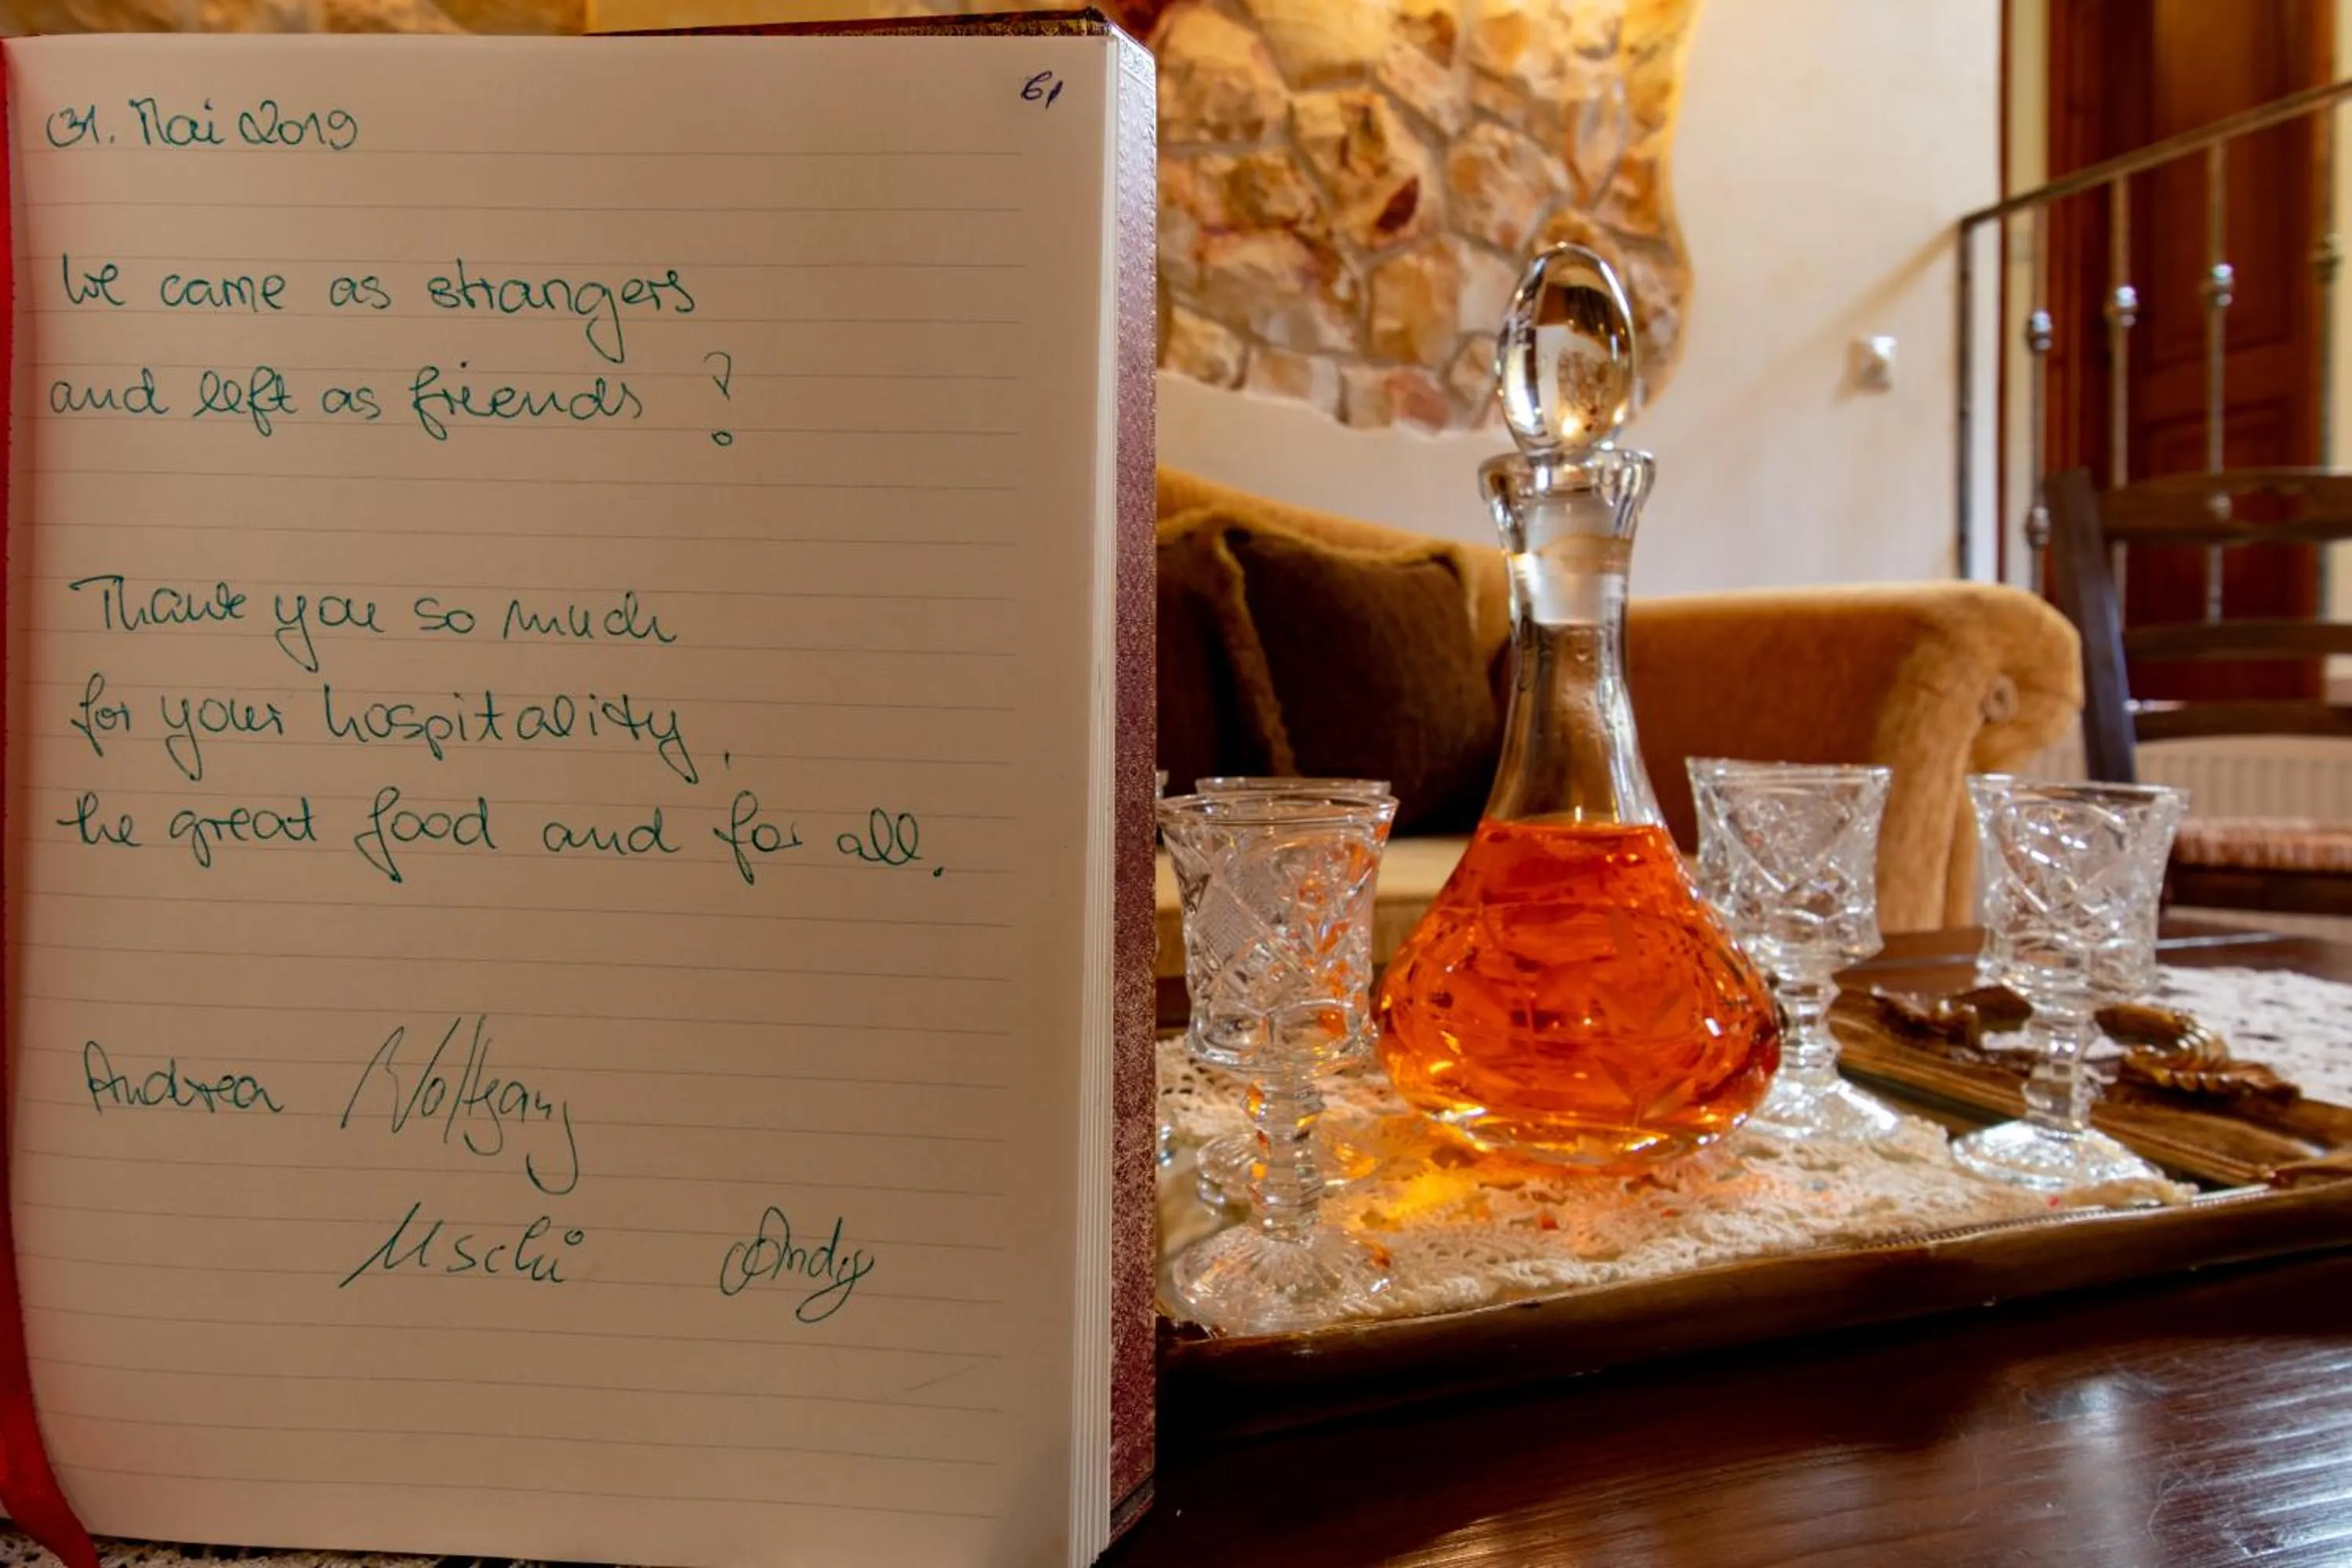 61
31. Mai 2019
We came as strangers
and left as friends !
Thank you so much
for your hospitality,
the great food and for all.
Andrea Wolfgang
Uschi Andy